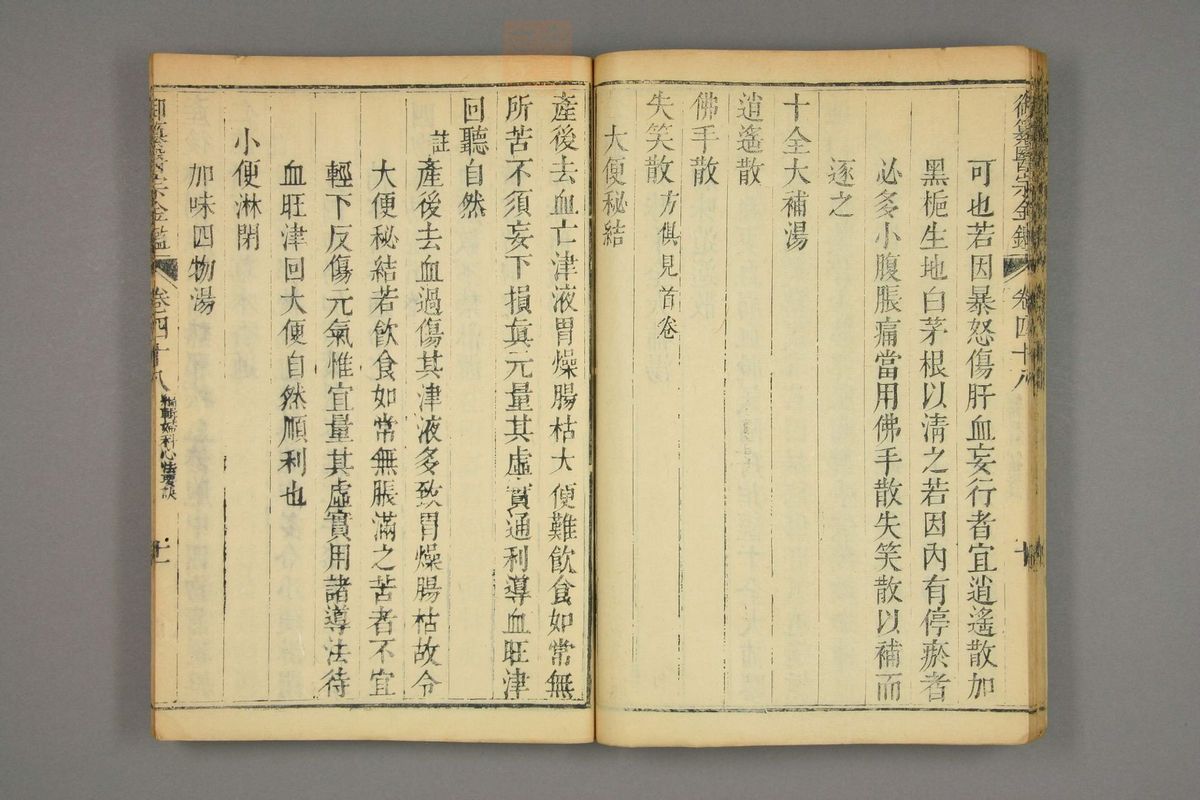 御纂醫宗金鑑
卷四十八
十
可也若因暴怒傷肝血妄行者宜逍遙散加
黑梔生地白茅根以清之若因內有停瘀者
必多小腹脹痛當用佛手散失笑散以補而
逐之
十全大補湯
逍遙散
佛手散
失笑散方俱見首卷
大便秘結
產後去血亡津液胃燥腸枯大便難飲食如常無
所苦不須妄下損眞元量其虛實通利導血旺津
回聽自然
註產後去血過傷其津液多致胃燥腸枯故令
大便秘結若飲食如常無脹滿之苦者不宜
輕下反傷元氣惟宜量其虛實用諸導法待
血旺津回大便自然順利也
小便淋閉
加味四物湯
御纂醫宗金鑑
卷四十八
編輯婦科心法要訣
十一